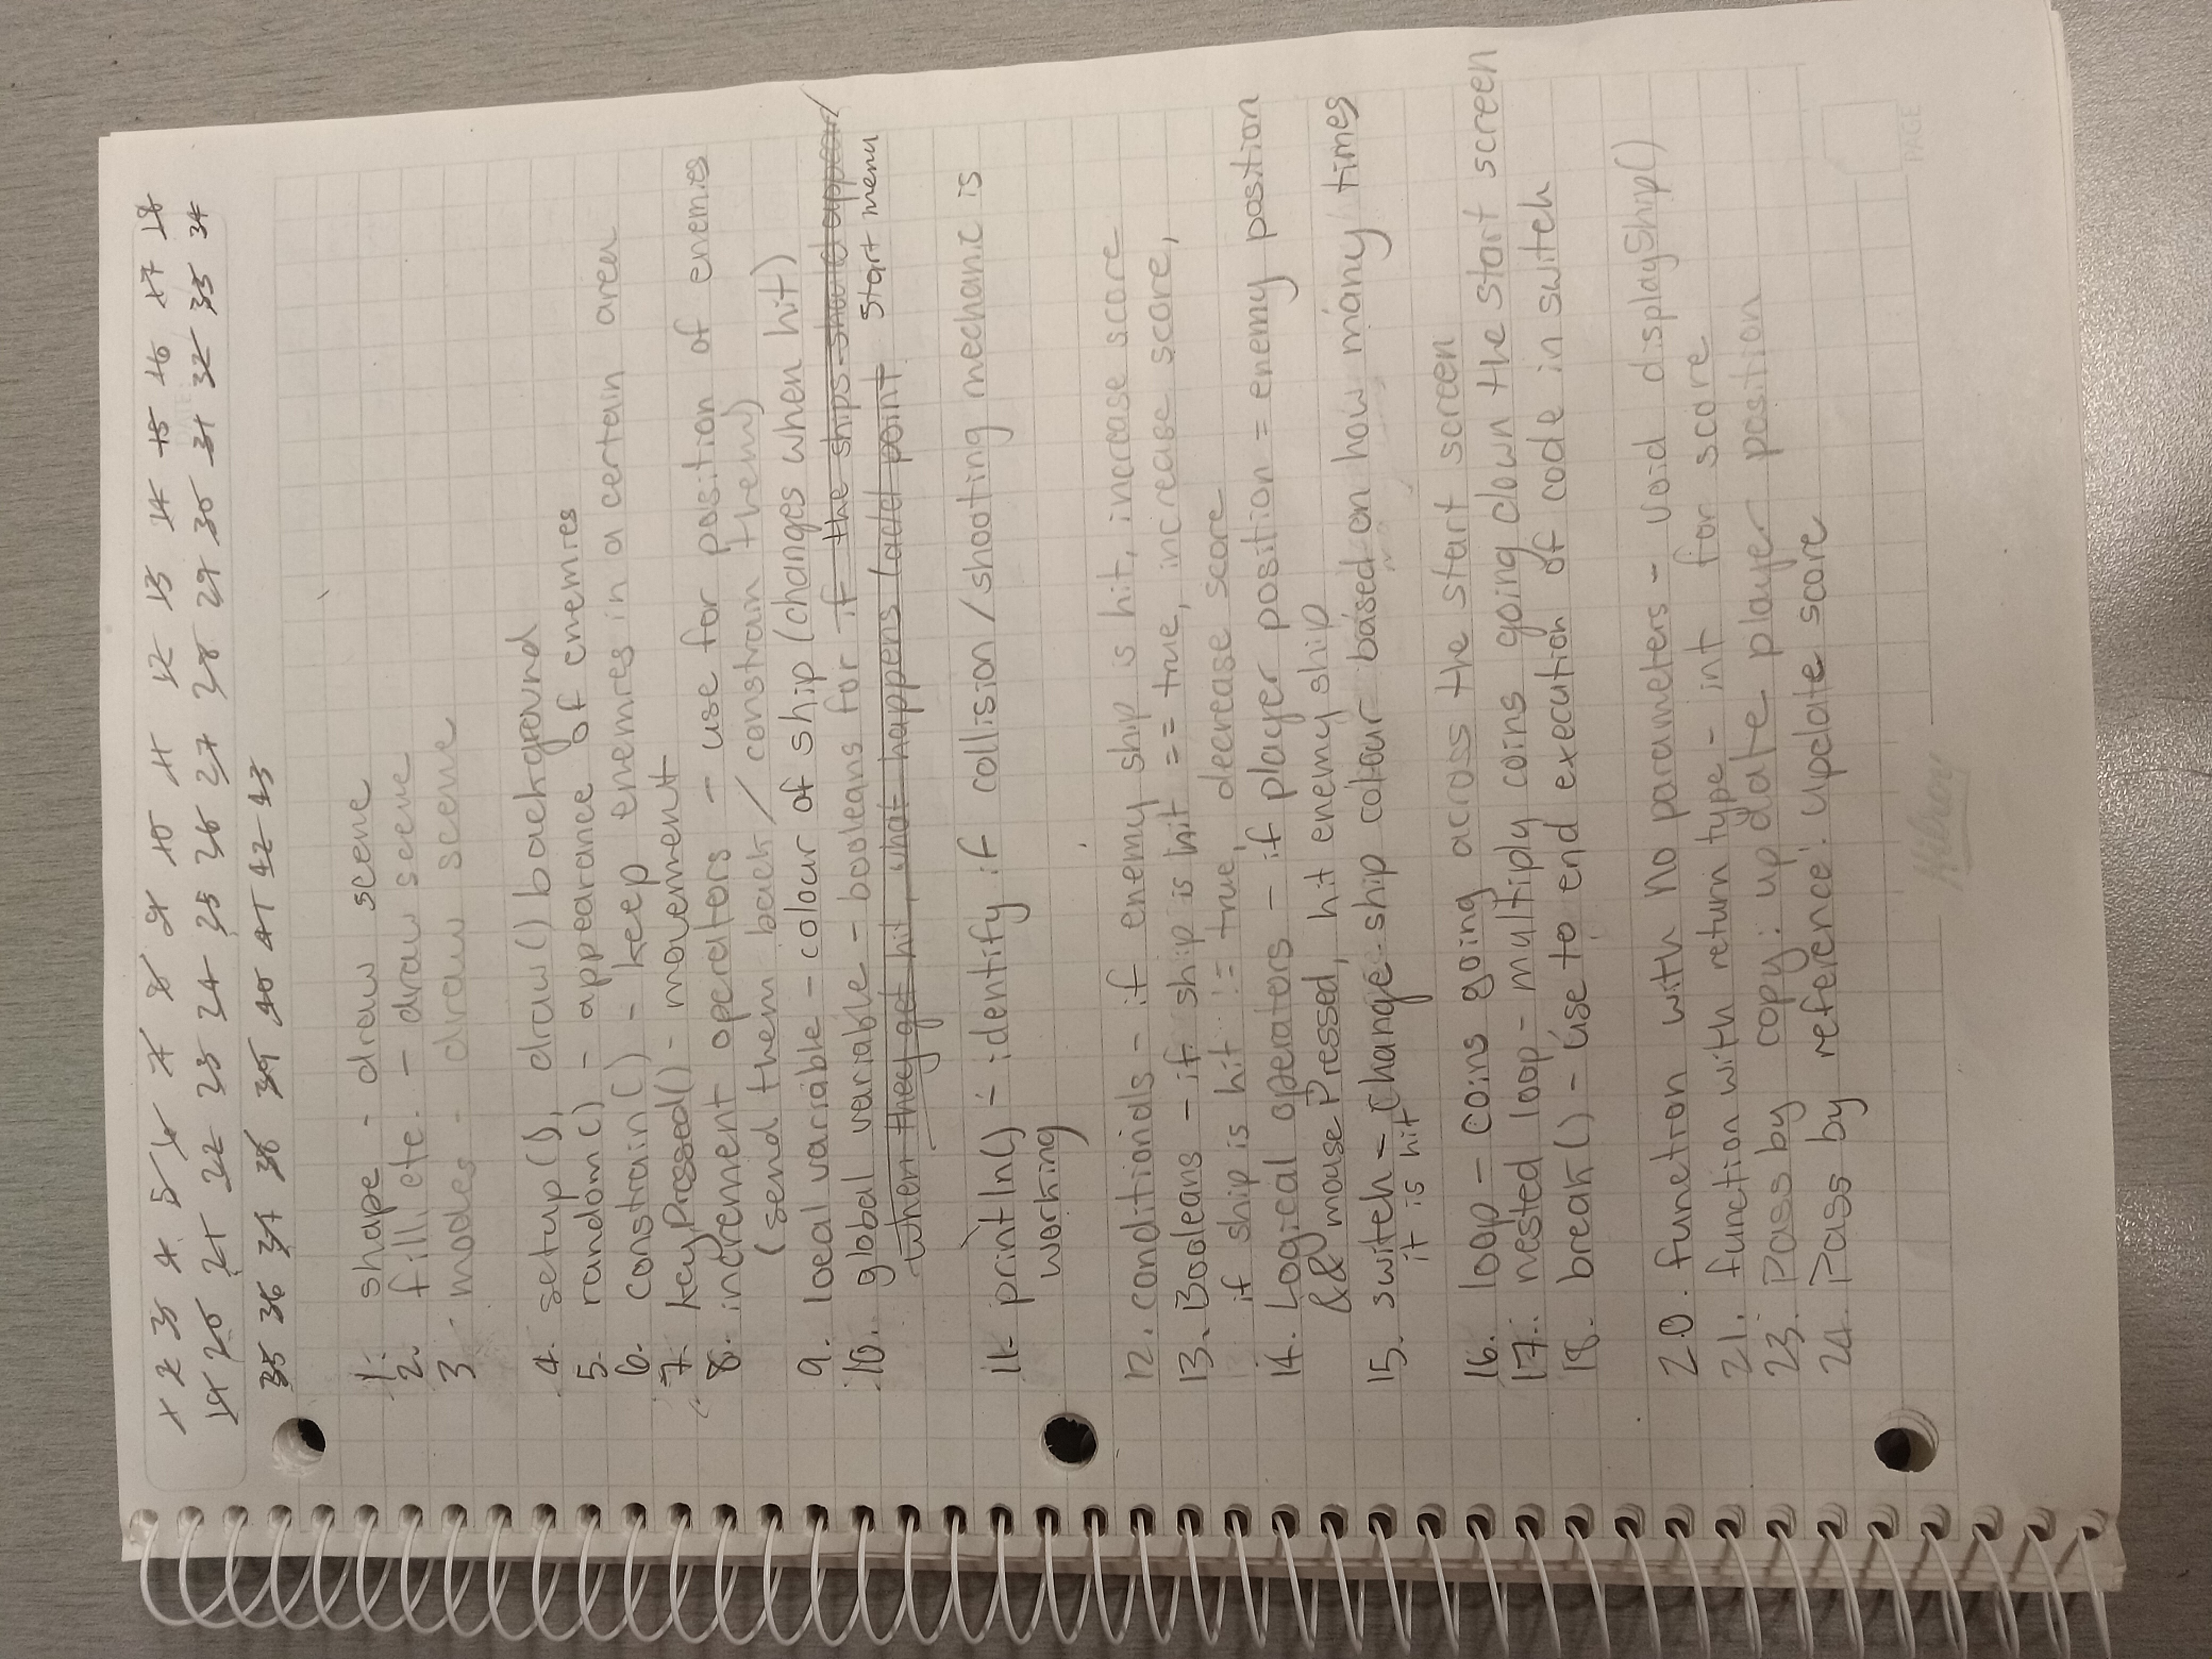 1 2 3 4 5 6 7 8 9 10 11 12 13 14 15 16 17 18
19 20 21 22 23 24 25 26 27 28 29 30 31 32 33 34
35 36 37 38 39 40 41 42 43
1. shape - draw scene
2. fill, etc. - draw scene
3 - modes - draw scene
4. setup(), draw() background
5. random() - appearance of enemies
6. constrain() - keep enemies in a certain area
7. keyPressed() - movement
8. increment operators - use for position of enemies
(send them back / constrain them)
9. local variable - colour of ship (changes when hit)
10. global variable - booleans for if the ships should appear/
when they get hit, what happens (add point Start menu
11. println() - identify if collision / shooting mechanic is
working
12. conditionals - if enemy ship is hit, increase score
13. Booleans - if ship is hit == true, increase score,
if ship is hit != true, decrease score
14. Logical operators - if player position = enemy position
&& mousePressed, hit enemy ship
15. switch - change ship colour based on how many times
it is hit
16. loop - coins going across the start screen
17. nested loop - multiply coins going down the start screen
18. break() - use to end execution of code in switch
20. function with no parameters - void displayShip()
21. function with return type - int for score
23. Pass by copy: update player position
24. Pass by reference: update score
Kilroy
PAGE